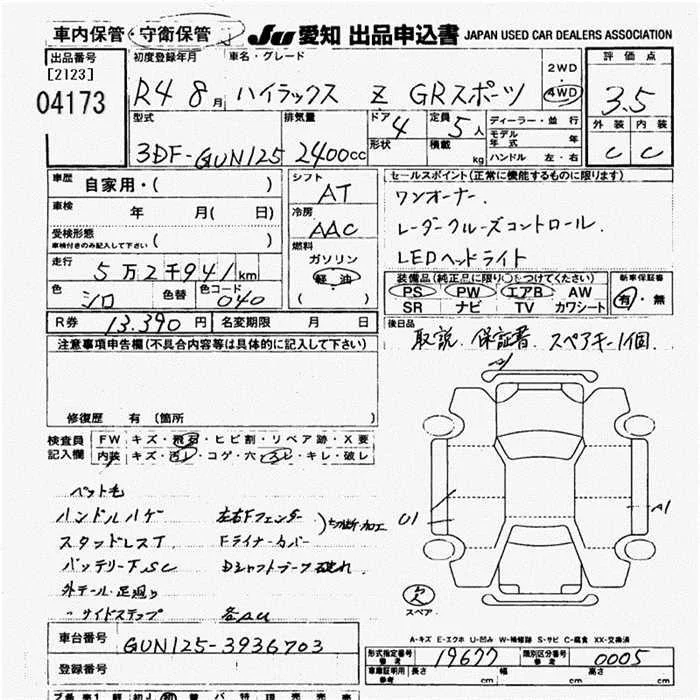 車内保管・守衛保管
JU 愛知 出品申込書 JAPAN USED CAR DEALERS ASSOCIATION
出品番号
[2123]
04173
初度登録年月 車名・グレード
R4 8月 ハイラックス Z GRスポーツ
2WD
4WD
評価点
3.5
外装 内装
C C
型式 排気量 ドア 4 定員 5人
3DF-GUN125 2400cc 形状 積載 kg
ディーラー・並行
モデル年式 年
ハンドル 左・右
車歴 自家用・( )
車検 年 月( 日)
受検形態
車検付きのみ記入して下さい ( )
走行 5万2千941km
色 シロ 色替 色コード 040
シフト AT
冷房 AAC
燃料
ガソリン
軽油
( )
セールスポイント(正常に機能するものに限ります)
ワンオーナー.
レーダークルーズコントロール.
LEDヘッドライト
装備品(純正品に限り○をつけてください)
PS PW エアB AW
SR ナビ TV カワシート
新車保証書
有・無
R券 13.390円 名変期限 月 日
後日品
取説. 保証書. スペアキー1個.
注意事項申告欄(不具合内容等は具体的に記入して下さい)
修復歴 有 (箇所 )
検査員記入欄
FW キズ・飛石・ヒビ割・リペア跡・X要
内装 キズ・汚レ・コゲ・穴・スレ・キレ・破レ
ペット毛
ハンドルハゲ 左右Fフェンダー
スタッドレスT Fライナーカバー
切断・加工
バッテリー下SC Dシャフトブーツ破れ
外テール・足廻り
〃サイドステップ 各AU
U1
A1
欠
スペア
A-キズ E-エクボ U-凹み W-補修跡 S-サビ C-腐食 XX-交換済
車台番号 GUN125-3936703
登録番号
形式指定番号 参考 19677 類別区分番号 参考 0005
車庫証明用 参考 長さ cm 幅 cm 高さ cm